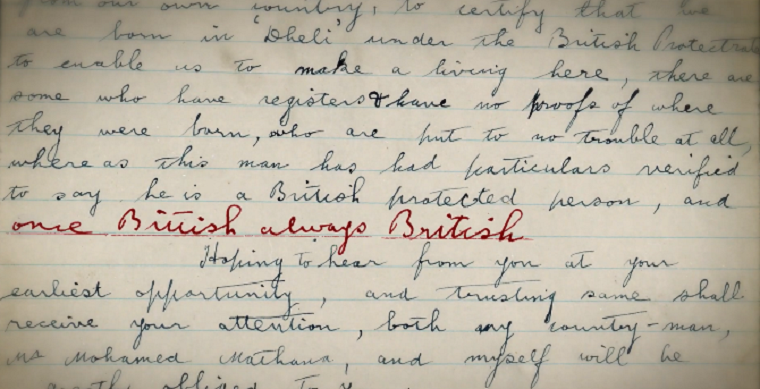 from our own country, to certify that we
are born in 'Dheli' under the British Protectrate
to enable us to make a living here, there are
some who have registers & have no proofs of where
they were born, who are put to no trouble at all,
where as this man has had particulars verified
to say he is a British protected person, and
once British always British
Hoping to hear from you at your
earliest opportunity, and trusting same shall
receive your attention, both my country-man,
Mr Mohamed and myself will be
greatly obliged to